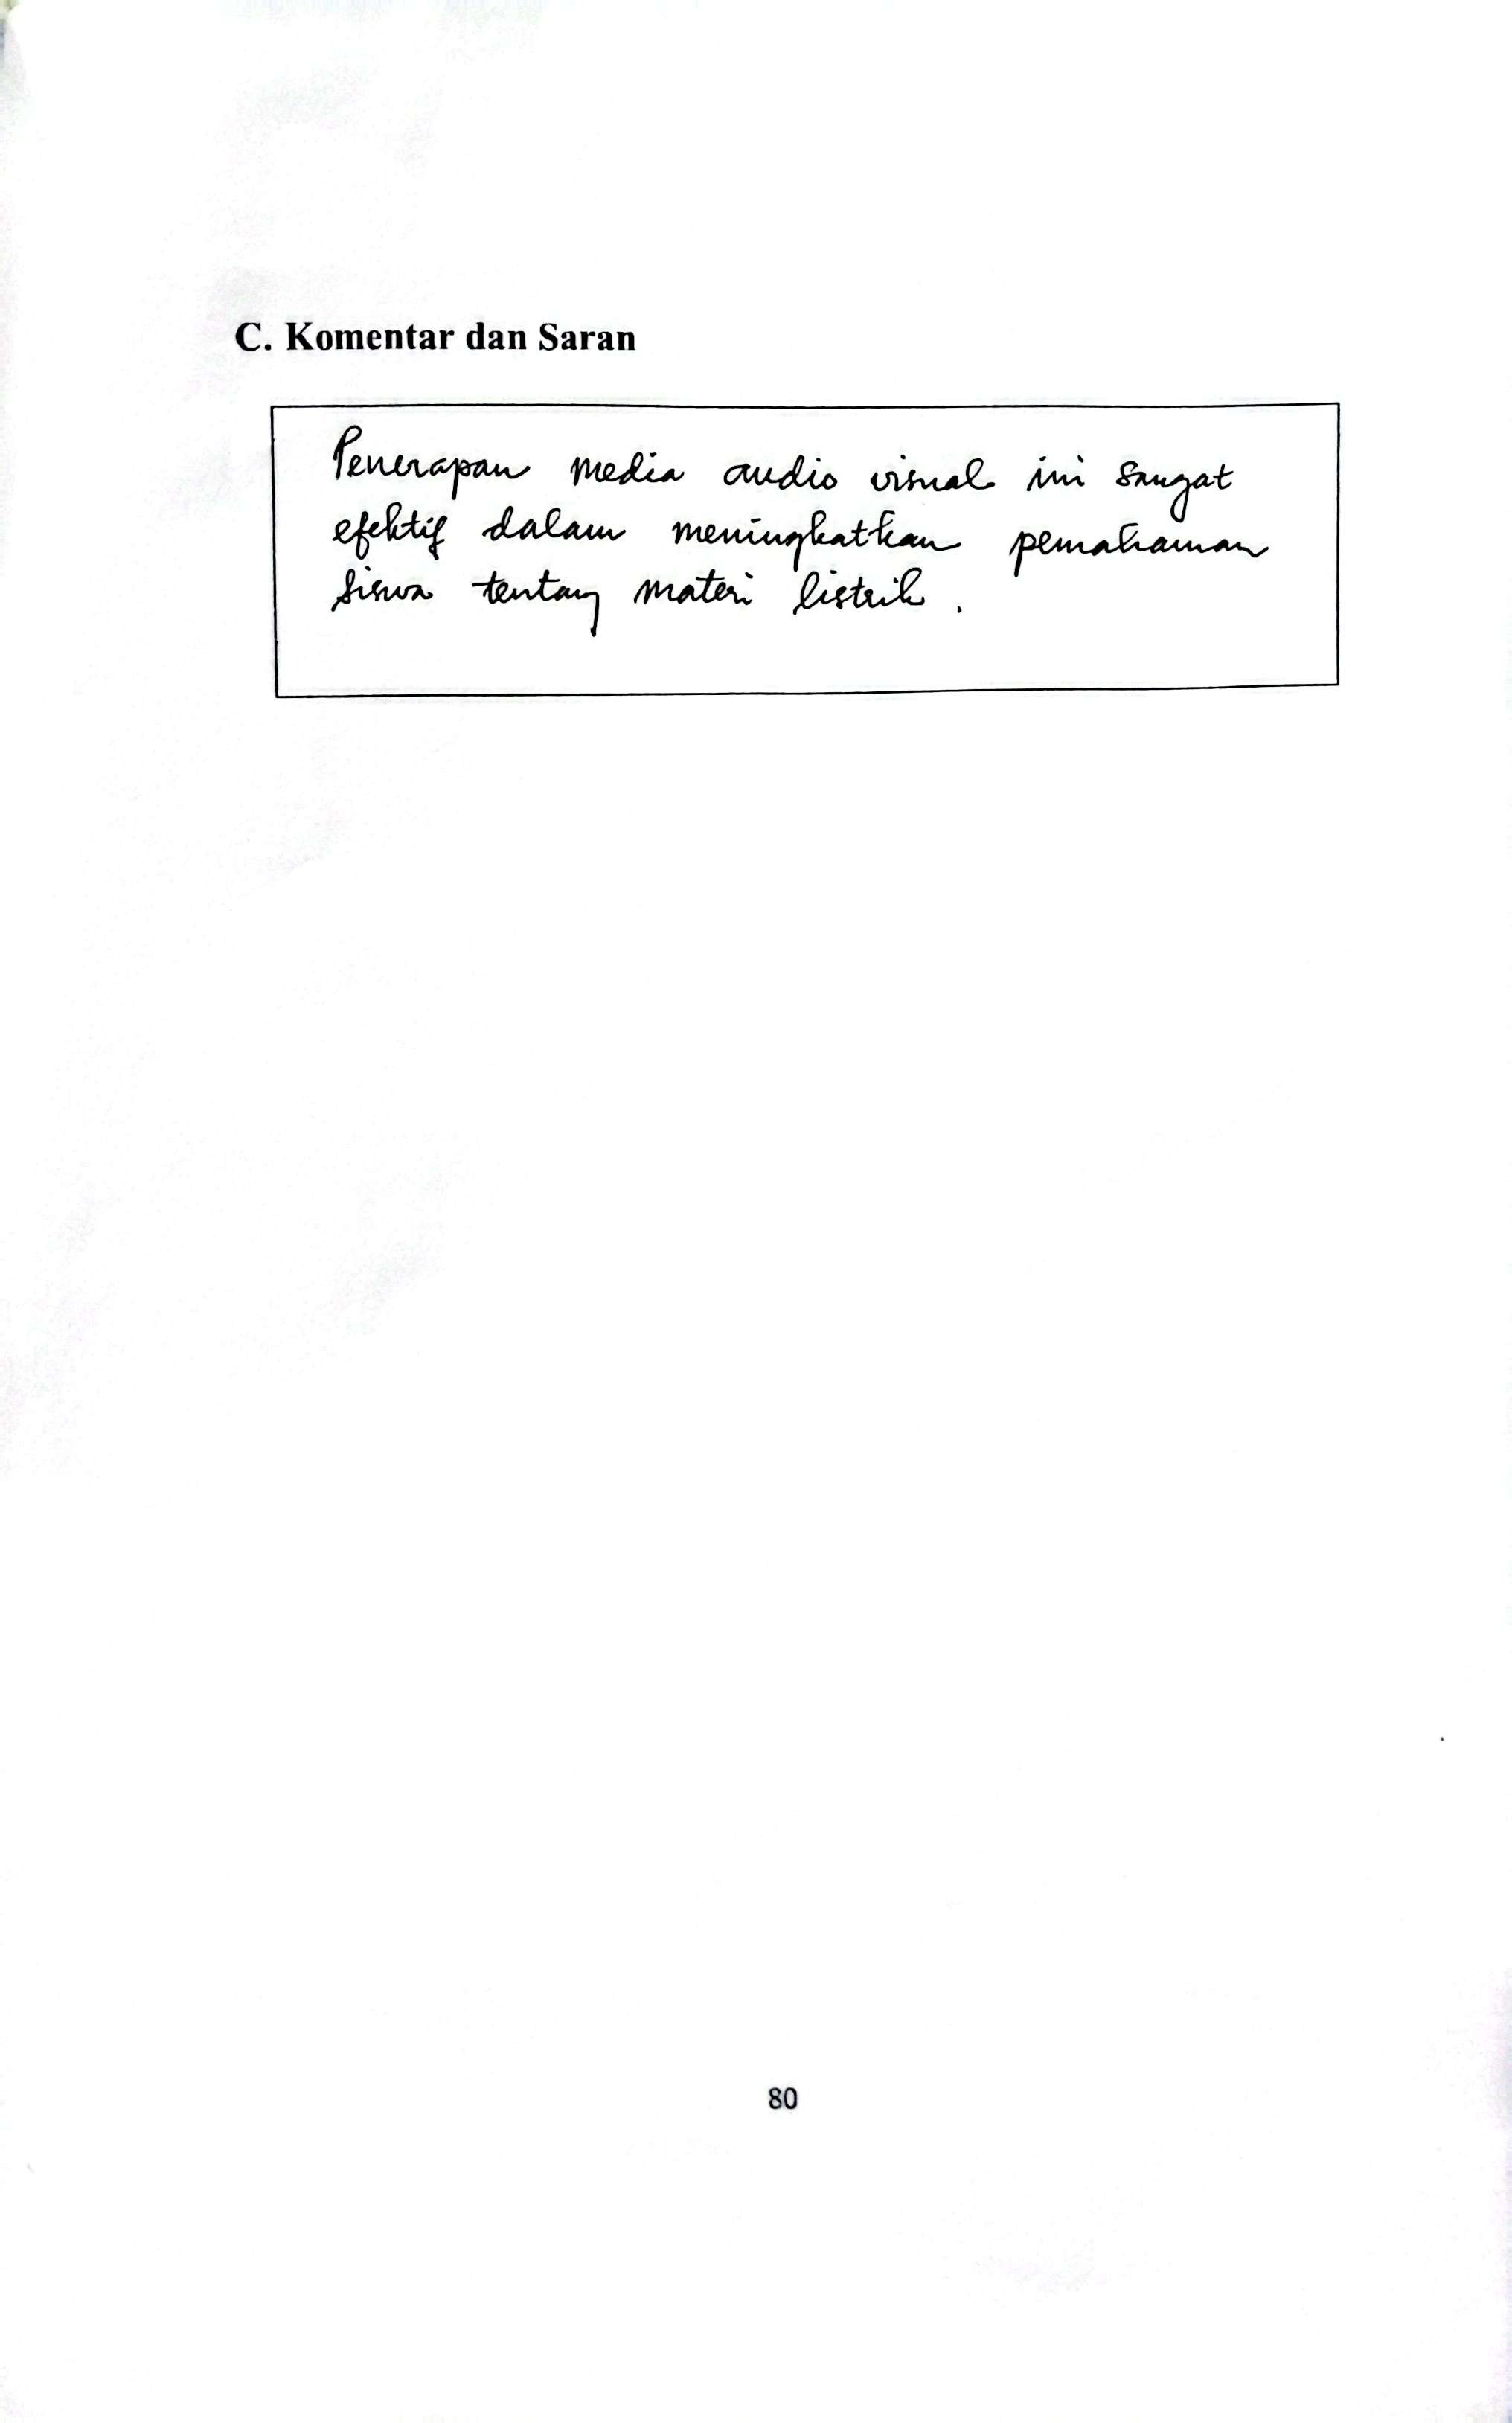 C. Komentar dan Saran
Penerapan media audio visual ini sangat
efektif dalam meningkatkan pemahaman
siswa tentang materi listrik.
80